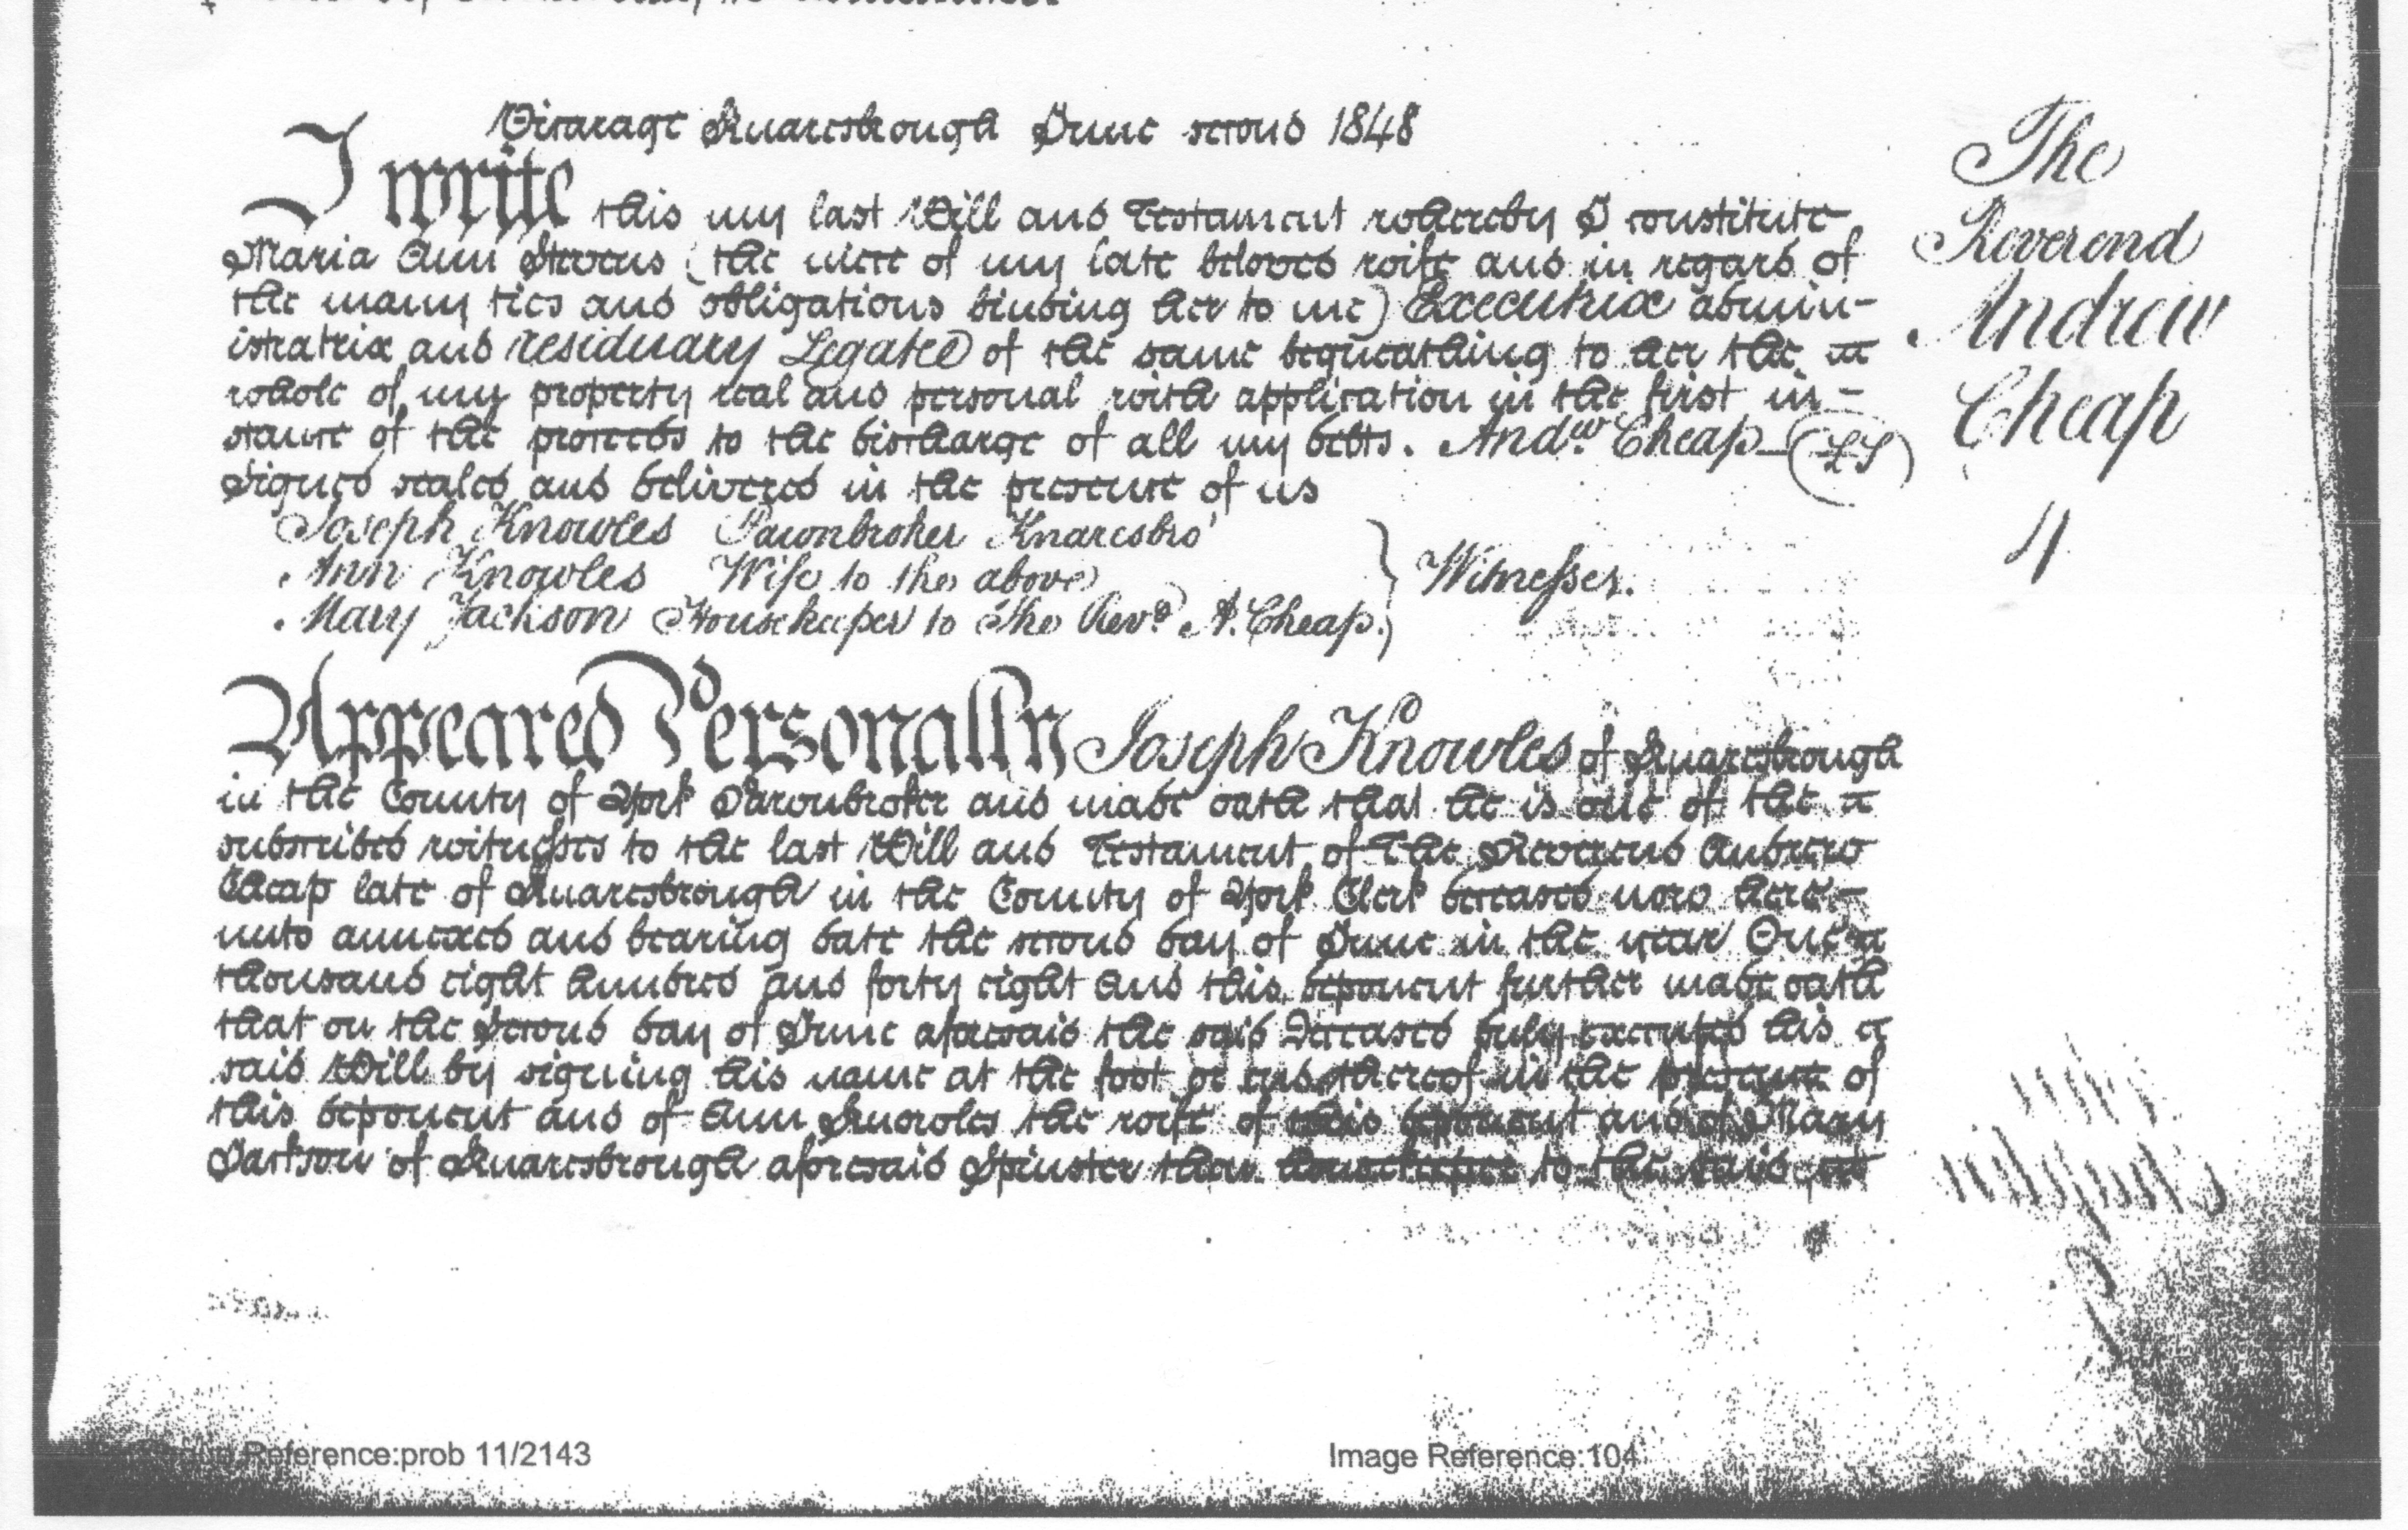 Vicarage Knaresbrough June second 1848
I write this my last Will and Testament whereby I constitute
Maria Ann Stevens (the niece of my late beloved wife and in regard of
the many ties and obligations binding her to me) Executrix admin-
istratrix and residuary Legatee of the same bequeathing to her the
whole of my property real and personal with application in the first in-
stance of the proceeds to the discharge of all my debts. Andw. Cheap - (LS)
Signed sealed and delivered in the presence of us
Joseph Knowles Pawnbroker Knaresbro'
Ann Knowles Wife to the above
Mary Jackson Housekeeper to the Revd. A. Cheap.
} Witnesses.
The
Reverend
Andrew
Cheap
4
Appeared Personally Joseph Knowles of Knaresbrough
in the County of York Pawnbroker and made oath that he is one of the
subscribed witnesses to the last Will and Testament of The Reverend Andrew
Cheap late of Knaresbrough in the County of York Clerk deceased now here-
unto annexed and bearing date the second day of June in the year One
thousand eight hundred and forty eight And this deponent further made oath
that on the Second day of June aforesaid the said Deceased duly executed his
said Will by signing his name at the foot or end thereof in the presence of
this deponent and of Ann Knowles the wife of this deponent and of Mary
Jackson of Knaresbrough aforesaid Spinster then housekeeper to the said
Reference:prob 11/2143
Image Reference:104